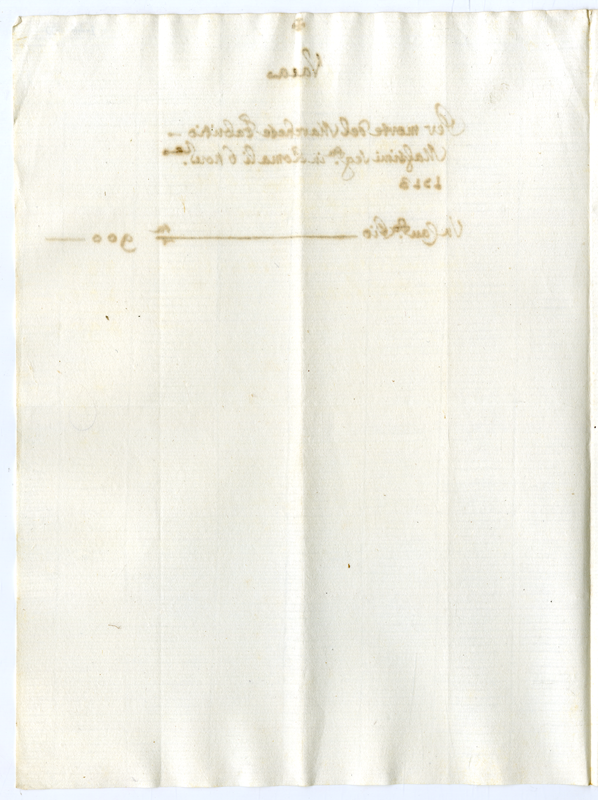 Vaca
Per morte del Marchese Fabritio
Massimi seg.ta in Roma li 6 Nov.bre
1713
Un Cau.to bio
900